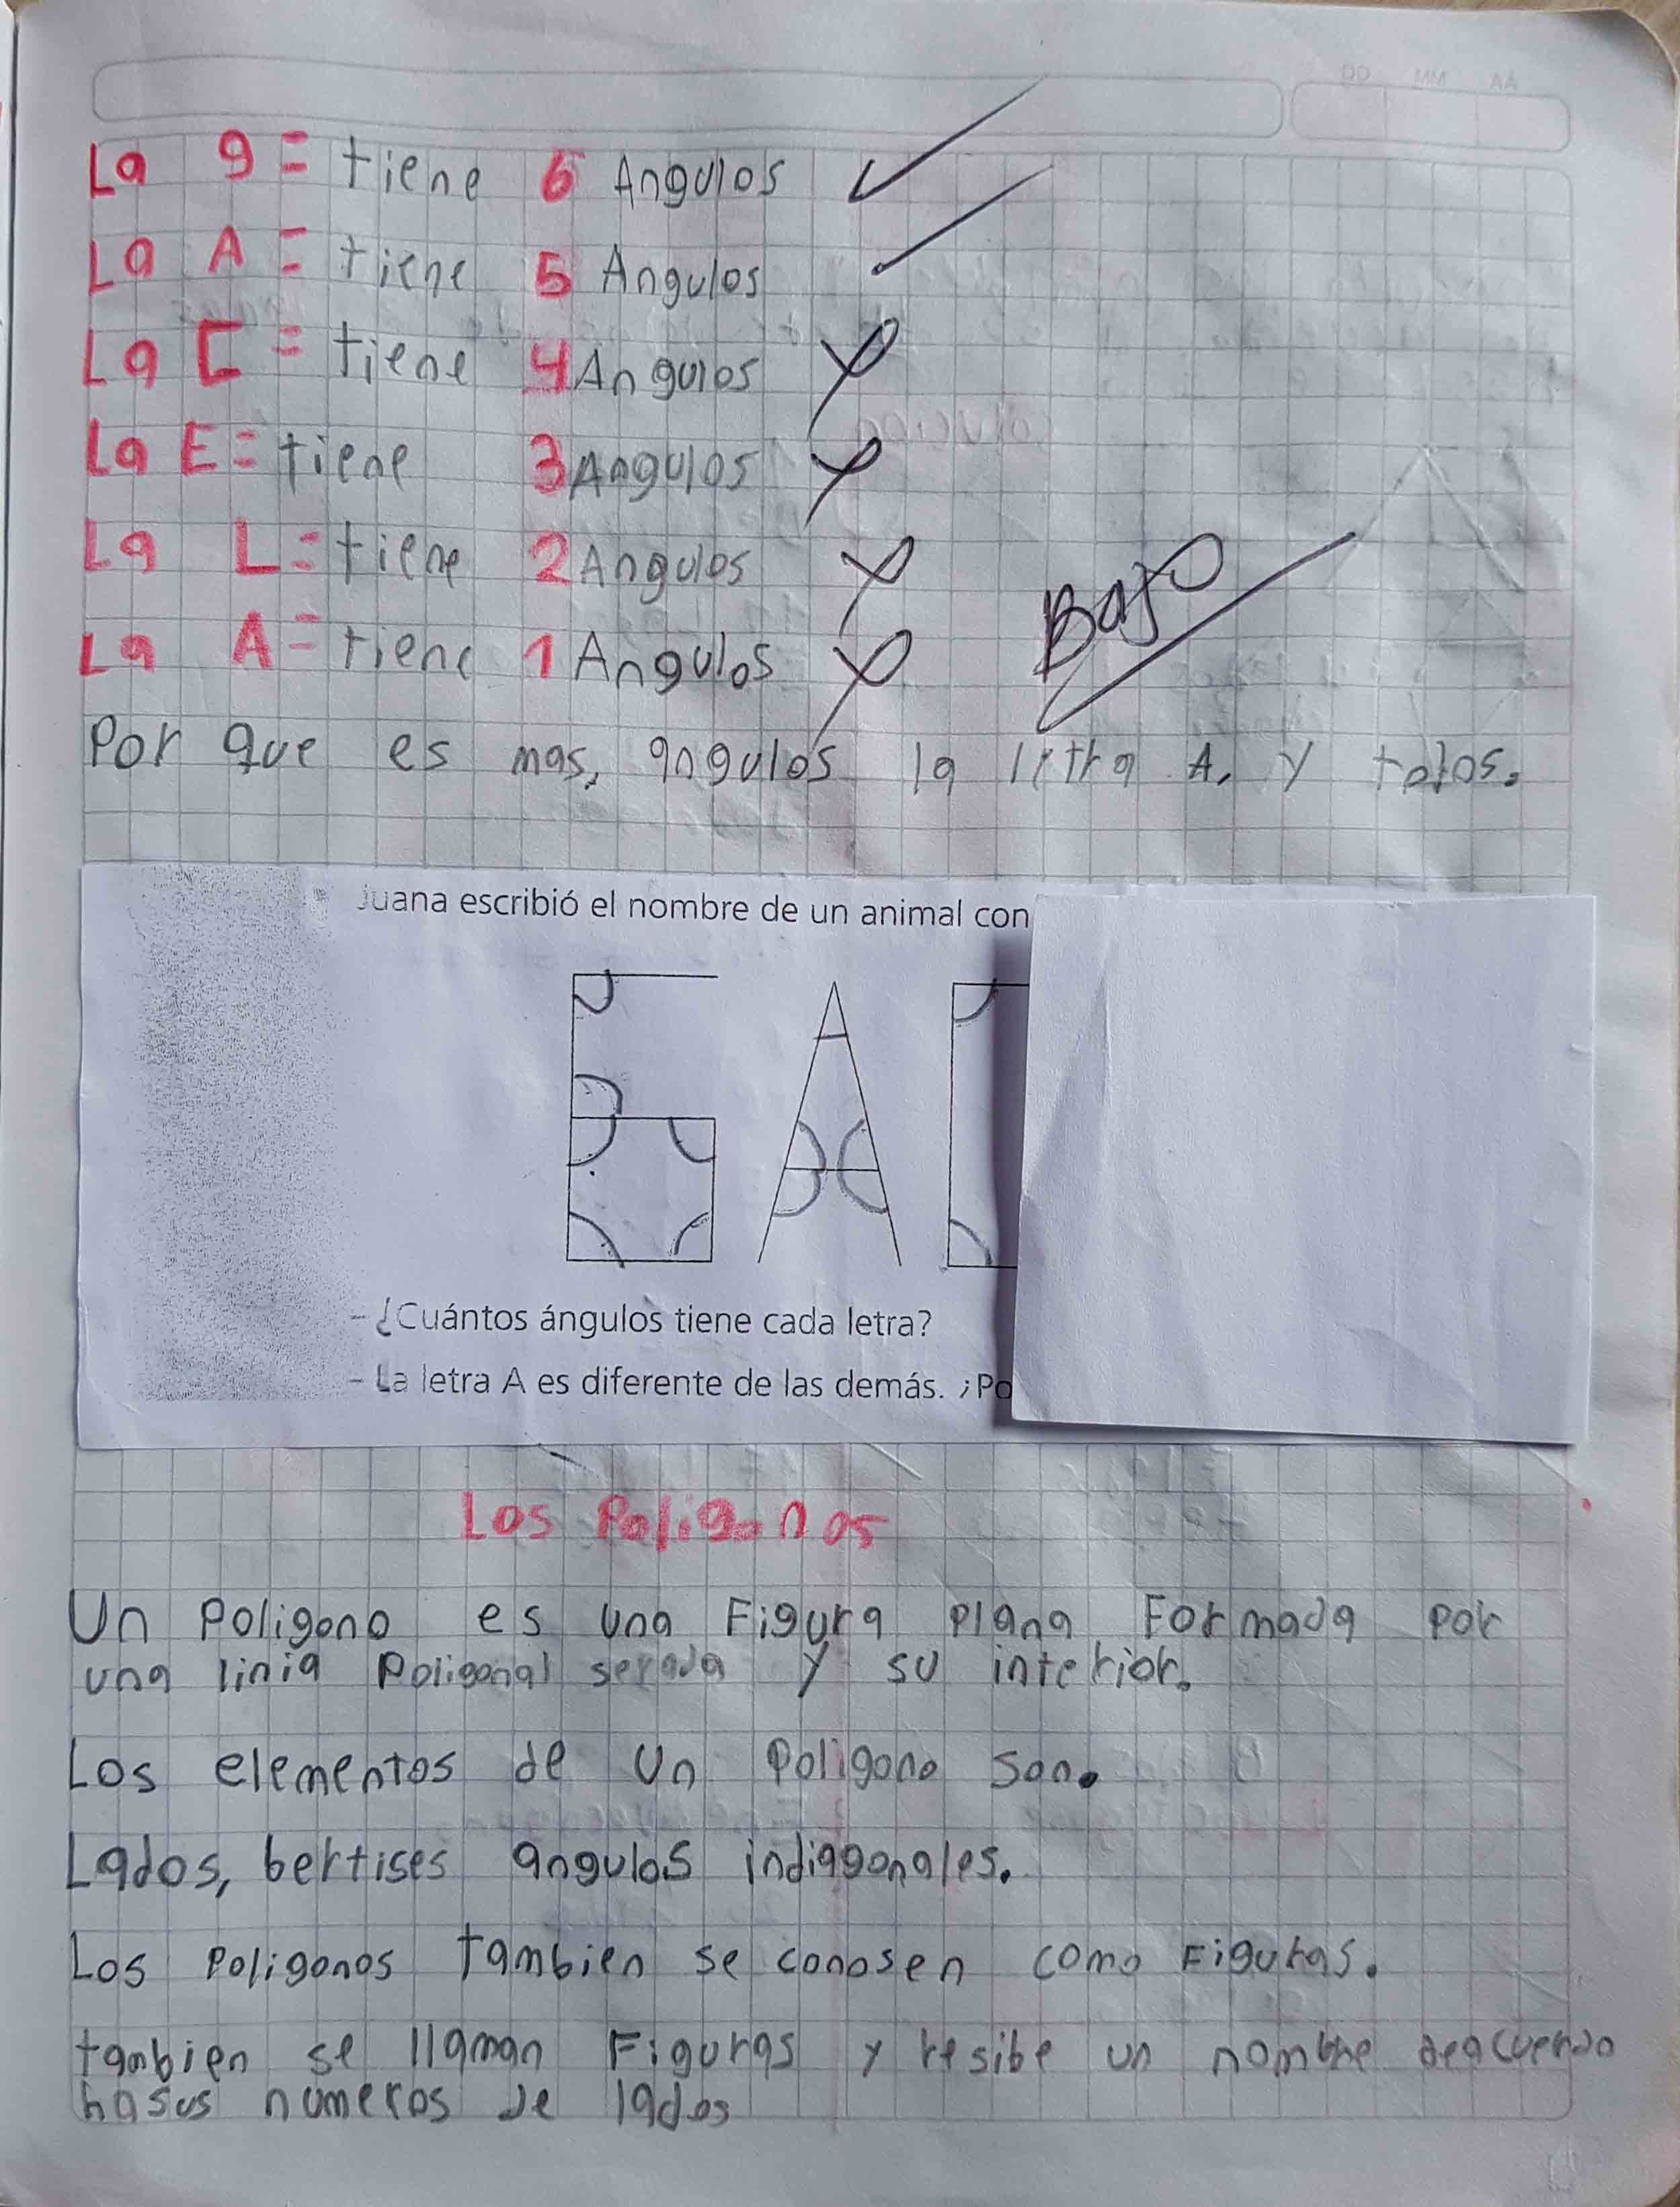 AA MM DD
La 9 = tiene 6 Angulos
La A = tiene 5 Angulos
La C = tiene 4 Angulos
La E = tiene 3 Angulos
La L = tiene 2 Angulos
La A = tiene 1 Angulos
Bajo
Por que es mas, angulos la letra A, y totos.
Juana escribió el nombre de un animal con
- ¿Cuántos ángulos tiene cada letra?
- La letra A es diferente de las demás. ¿Po
Los Poligonos
Un Poligono es una Figura plana Formada por
una linia Poligonal serada y su interior.
Los elementos de un Poligono son.
Lados, bertises angulos indiagonales.
Los Poligonos tambien se conosen como Figuras.
tanbien se llaman Figuras y resibe un nombre deacuerdo
hasus numeros de lados